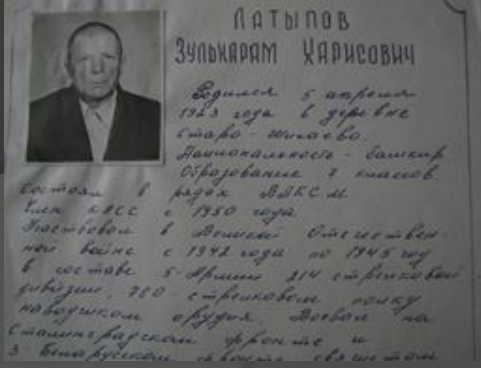 ЛАТЫПОВ
ЗУЛЬКАРАМ ХАРИСОВИЧ
Родился 5 апреля
1923 года в деревне
Старо-
Национальность - башкир
Образование 7 классов
Состоял в рядах ВЛКСМ
Член КПСС с 1950 года
Участвовал в Великой Отечествен-
ной войне с 1942 года по 1945 год
в составе 5-Армии 214 стрелковой
дивизии, 780-стрелковом полку
наводчиком орудия Воевал на
Сталинградском фронте и
3 Беларусском фронте связистом